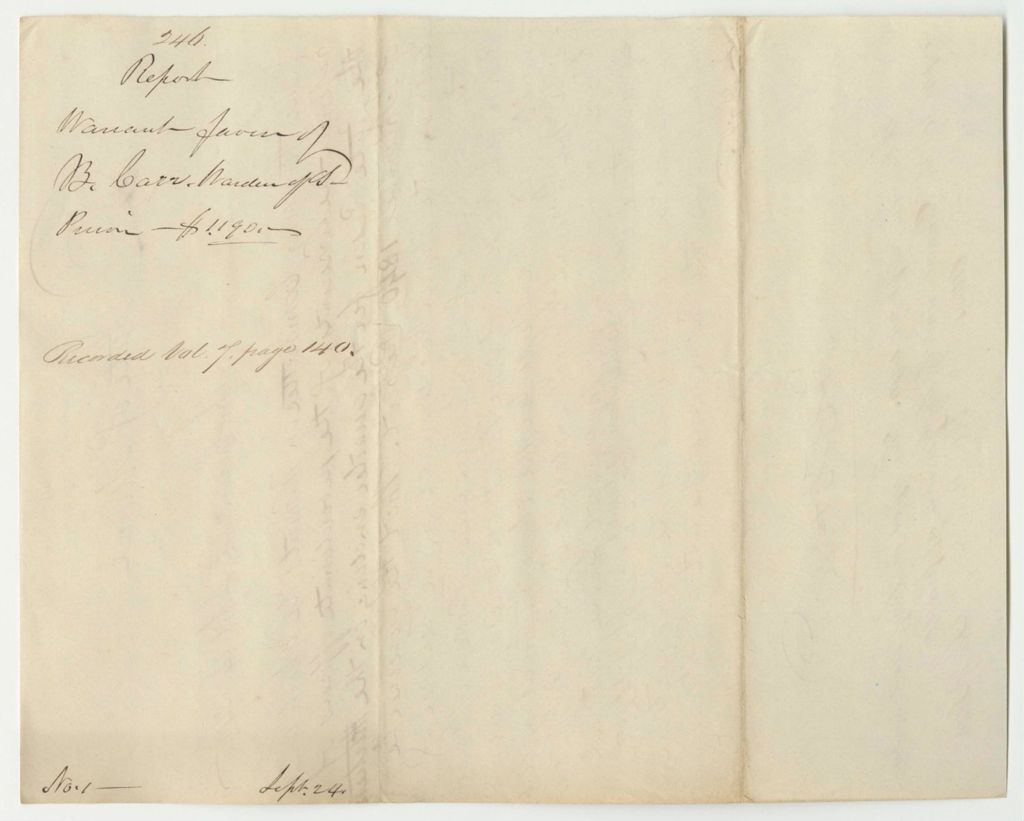 246.
Report
Warrant favor of
B. Carr. Warden of St
Prison — $1190.—
Recorded Vol. 7. page 140.
No. 1 —
Sept. 24.